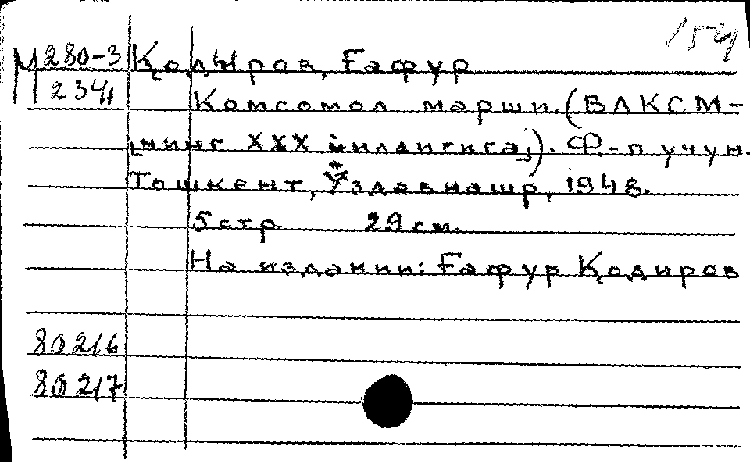 154
М 280-3 Қодыров, Ғафур
2341
Комсомол марши. (ВЛКСМ-
[нинг XXX йиллигига]). Ф.-п учун.
Тошкент, Ўздавнашр, 1948.
5 стр 29 см.
На издании: Ғафур Қодиров
80216
80217